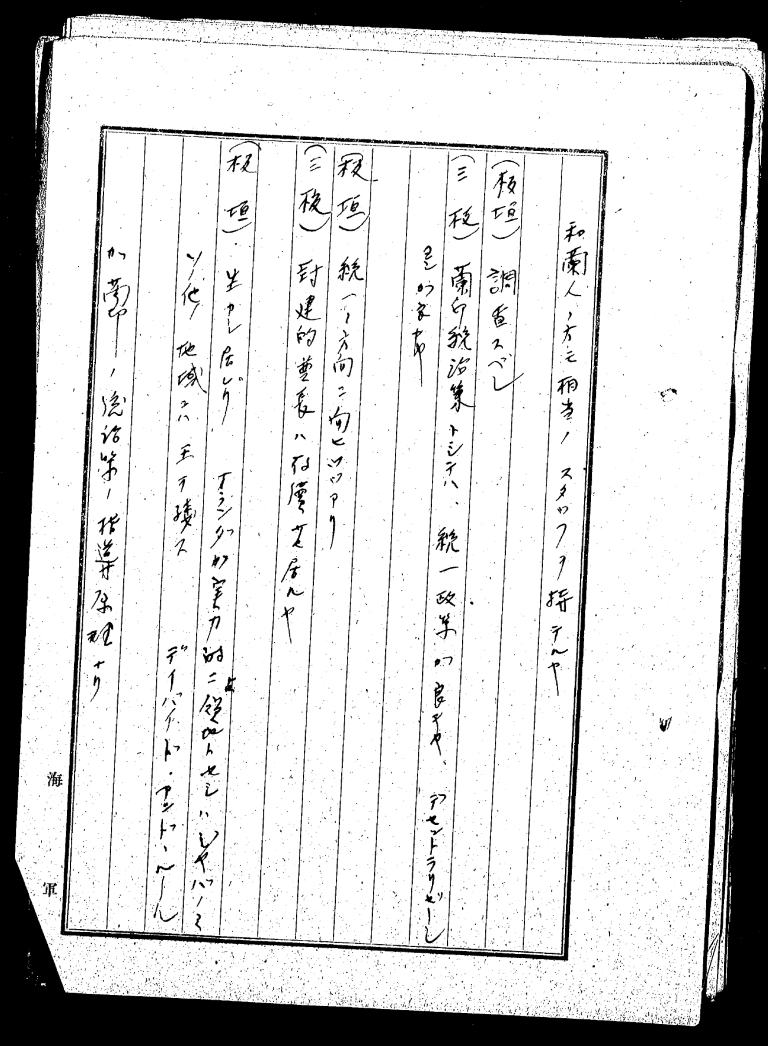 和蘭人ノ方モ相当ノスタッフヲ持テルヤ
(板垣) 調査スベシ
(三枝) 蘭印統治策トシテハ、統一政策ガ良キヤ、デセントラリゼーシ
ヨンガ良キヤ
(板垣) 統一ノ方向ニ向ヒツツアリ
(三枝) 封建的酋長ハ存続シ居ルヤ
(板垣) 生カシ居レリ オランダガ実力的ニ領地トセシハジヤバノミ
ソノ他ノ地域ハ王ヲ残ス デイバイド・アンド・ルール
ガ蘭印ノ統治策ノ指導原理ナリ
海軍